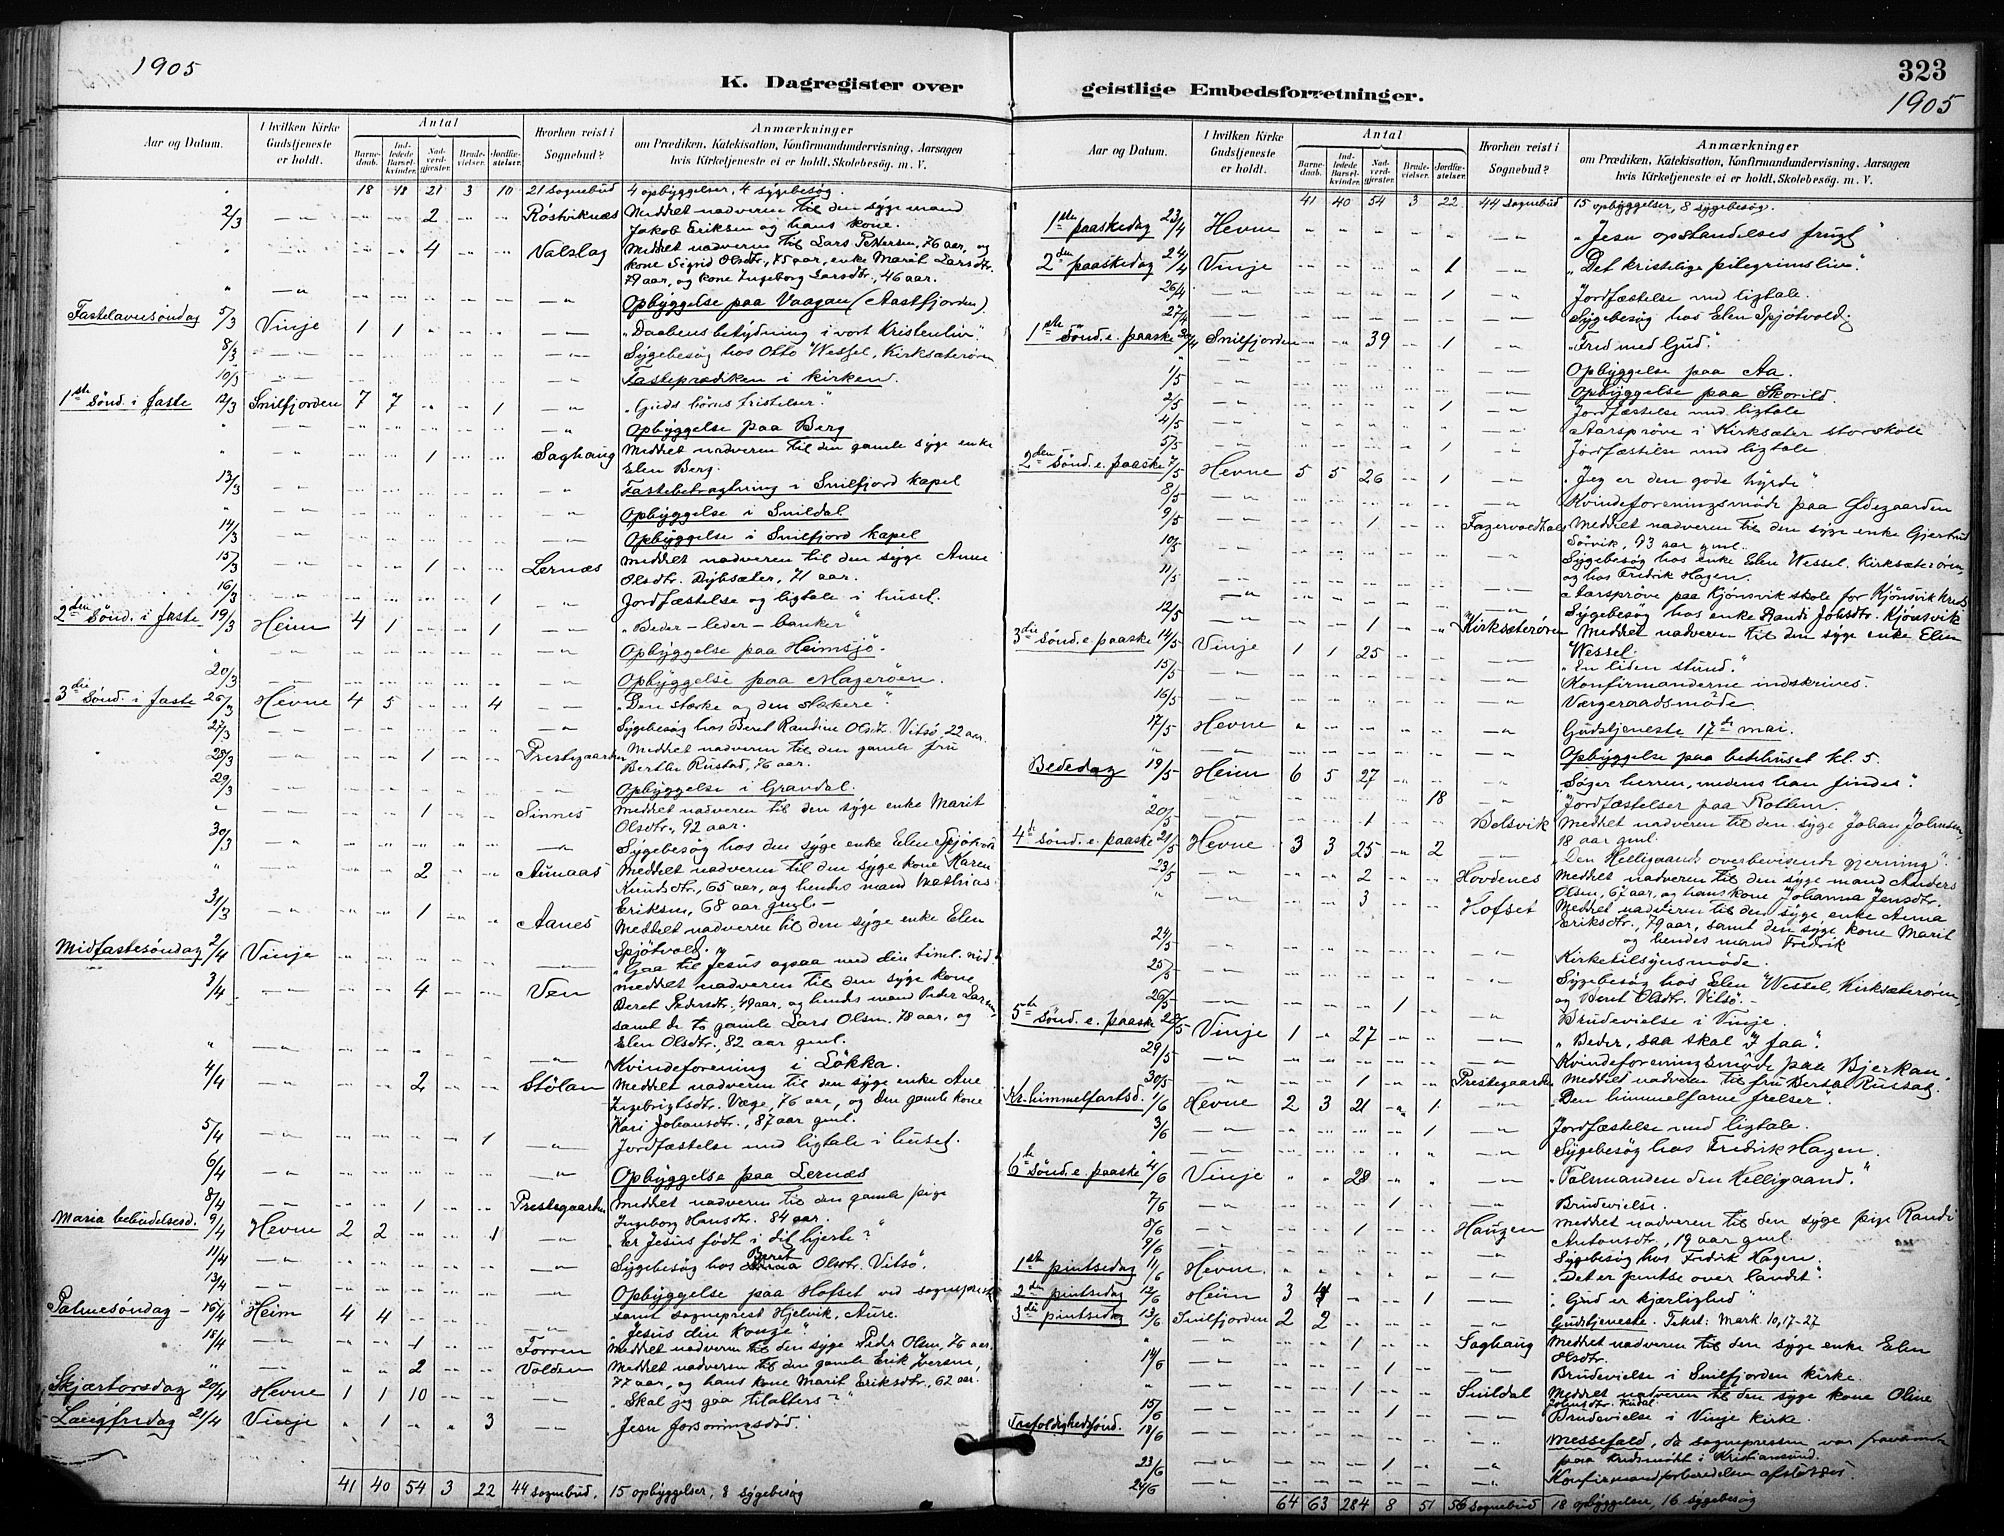 1905
K. Dagregister over
Aar og Datum.
I hvilken Kirke Gudstjeneste er holdt.
Antal
Barnedaab.
Indledede Barselkvinder.
Nadverdgjester.
Brudevielser.
Jordfæstelser.
Hvorhen reist i Sognebud?
Anmærkninger
om Prædiken, Katekisation, Konfirmandundervisning, Aarsagen
hvis Kirketjeneste ei er holdt, Skolebesøg. m. V.
18 18 21 3 10 21 sognebud 4 opbyggelser, 4 sygebesøg.
2/3 2 Røstviknæs Meddelt nadveren til den syge mand
Jakob Eriksen og hans kone.
4 Valslag Meddelt nadveren til Lars Pettersen, 76 aar, og
kone Sigrid Olsdtr., 75 aar, enke Marit Larsdtr.
79 aar, og kone Ingeborg Larsdtr., 46 aar.
Opbyggelse paa Vaagan (Aastfjorden).
Fastelavnsøndag 5/3 Vinje 1 1 "Daabens betydning i vort kristenliv".
8/3 Sygebesøg hos Otto Wessel, Kirksæterøren
10/3 Fasteprædiken i kirken.
1ste Sønd. i faste 12/3 Snilfjorden 7 7 1 "Guds børns fristelser."
Opbyggelse paa Berg
1 Saghaug Meddelt nadveren til den gamle syge enke
Elen Berg.
13/3 Fastebetragtning i Snilfjord kapel
Opbyggelse i Snildal
14/3 Opbyggelse i Snilfjord kapel
15/3 1 Lernæs Meddelt nadveren til den syge Anne
Olsdtr. Dybsæter, 71 aar.
16/3 1 Jordfæstelse og ligtale i huset.
2den Sønd. i faste 19/3 Heim 4 1 1 "Beder – leder – banker"
Opbyggelse paa Heimsjø.
20/3 Opbyggelse paa Magerøen.
3die Sønd. i faste 26/3 Hevne 4 5 4 "Den stærke og den stærkere".
27/3 Sygebesøg hos Beret Randine Olsdtr. Vitsø, 22 aar.
28/3 1 Prestegaarden Meddelt nadveren til den gamle fru
Berthe Rustad, 76 aar.
29/3 Opbyggelse i Grandal.
1 Sinnes Meddelt nadveren til den syge enke Marit
Olsdtr., 92 aar.
30/3 Sygebesøg hos den syge enke Elen Spjøtvold
2 Aunaas Meddelt nadveren til den syge kone Karen
Knudsdtr., 65 aar, og hendes mand Mathias
Eriksen, 68 aar gml.
31/3 1 Aanes Meddelt nadveren til den syge enke Elen
Spjøtvold.
Midfastesøndag 2/4 Vinje "Gaa til Jesus ogsaa med din timl. nød"
3/4 4 Ven Meddelt nadveren til den syge kone
Beret Pedersdtr., 49 aar, og hendes mand Peder Larsen,
samt de to gamle Lars Olsen, 78 aar, og
Elen Olsdtr., 82 aar gml.
Kvindeforening i Løkka.
4/4 2 Stølan Meddelt nadveren til den syge enke Ane
Ingebrigtsdtr. Væge, 76 aar, og den gamle kone
Kari Johansdtr., 87 aar gml.
5/4 1 Jordfæstelse med ligtale i huset.
6/4 Opbyggelse paa Lernæs
8/4 1 Prestegaarden Meddelt nadveren til den gamle pige
Ingeborg Hansdtr. 84 aar.
Maria bebudelsesd. 9/4 Hevne 2 2 1 "Er Jesus født i dit hjerte?"
11/4 Sygebesøg hos Beret Olsdtr. Vitsø.
13/4 Opbyggelse paa Hofset ved sogneprest
samt sogneprest Hjelvik, Aure.
Palmesøndag – 16/4 Heim 4 4 "Jesus den konge".
15/4 1 Forren Meddelt nadveren til den syge Peder Olsen, 76 aar.
2 Volden Meddelt nadveren til den gamle Erik Iversen,
77 aar, og hans kone Marit Eriksdtr., 62 aar.
Skjærtorsdag 20/4 Hevne 1 1 10 "Skal jeg gaa tilalters?"
Langfredag 21/4 Vinje 1 3 "Jesu forsoningsdød".
41 40 54 3 22 44 sognebud. 15 opbyggelser, 8 sygebesøg
323
1905
geistlige Embedsforretninger.
Aar og Datum.
I hvilken Kirke Gudstjeneste er holdt.
Antal
Barnedaab.
Indledede Barselkvinder.
Nadverdgjester.
Brudevielser.
Jordfæstelser.
Hvorhen reist i Sognebud?
Anmærkninger
om Prædiken, Katekisation, Konfirmandundervisning, Aarsagen
hvis Kirketjeneste ei er holdt, Skolebesøg. m. V.
41 40 54 3 22 44 sognebud 15 opbyggelser, 8 sygebesøg.
1ste paaskedag 23/4 Hevne "Jesu opstandelses frugt"
2den paaskedag 24/4 Vinje 1 "Det kristelige pilegrimsliv".
26/4 1 Jordfæstelse med ligtale.
27/4 Sygebesøg hos Elen Spjøtvold
1ste Sønd. e. paaske 30/4 Snilfjorden 39 1 "Fred med Gud".
Opbyggelse paa Aa.
1/5 Opbyggelse paa Skorild.
2/5 1 Jordfæstelse med ligtale
4/5 Aarsprøve i Kirksæter storskole
5/5 1 Jordfæstelse med ligtale.
2den Sønd. e. paaske 7/5 Hevne 5 5 26 1 "Jeg er den gode hyrde"
8/5 Kvindeforeningsmøde paa Ødegaarden
9/5 1 Fagervoldhals Meddelt nadveren til den syge enke Gjertrud
Sørvik, 93 aar gml.
10/5 Sygebesøg hos enke Elen Wessel, Kirksæterøren,
11/5 og hos Fredrik Hagen.
Aarsprøve paa Kjønsvik skole for Kjønsvik kreds
12/5 Sygebesøg hos enke Randi Johsdtr. Kjønsvik
1 Kirksæterøren Meddelt nadveren til den syge enke Elen
Wessel.
3die Sønd. e. paaske 14/5 Vinje 1 1 25 "En liden stund."
15/5 Konfirmanderne indskrives.
16/5 Værgeraadsmøde.
17/5 Hevne Gudstjeneste 17de mai.
Opbyggelse paa bedehuset kl. 5.
Bededag 19/5 Heim 6 5 27 "Søger herren, medens han findes".
18 Jordfæstelser paa Rottem.
20/5 1 Belsvik Meddelt nadveren til den syge Johan Johnsen,
18 aar gml.
4de Sønd. e. paaske 21/5 Hevne 3 3 25 2 "Den Helligaands overbevisende gjerning".
23/5 2 Hovdenes Meddelt nadveren til den syge mand Anders
Olsen, 67 aar, og hans kone Johanna Jensdtr.
3 Hofset Meddelt nadveren til den syge enke Anna
Eriksdtr., 79 aar, samt den syge kone Marit
og hendes mand Fredrik
24/5 Kirketilsynsmøde.
25/5 Sygebesøg hos Elen Wessel, Kirksæterøren,
og Beret Olsdtr. Vitsø.
26/5 1 Brudevielse i Vinje.
5te Sønd. e. paaske 28/5 Vinje 1 27 "Beder, saa skal I faa".
29/5 Kvindeforeningsmøde paa Bjerkan.
30/5 1 Prestegaarden Meddelt nadveren til fru Berta Rustad.
Kr. himmelfartsd. 1/6 Hevne 2 3 21 1 "Den himmelfarne frelser".
3/6 1 Jordfæstelse med ligtale.
Sygebesøg hos Fredrik Hagen.
6te Sønd. e. paaske 4/6 Vinje 28 "Talsmanden den Helligaand."
7/6 1 Brudevielse.
8/6 1 Haugen Meddelt nadveren til den syge pige Randi
Antonsdtr., 19 aar gml.
9/6 Sygebesøg hos Fredrik Hagen.
1ste pintsedag 11/6 Hevne "Det er pintse over landet".
2den pintsedag 12/6 Heim 3 4 1 "Gud er kjærlighed"
3die pintsedag 13/6 Snilfjorden 2 2 Gudstjeneste. Tekst: Mark. 10,17-27
1 Saghaug Meddelt nadveren til den syge enke Elen
Olsdtr.
14/6 1 Brudevielse i Snilfjorden kirke.
1 Snildal Meddelt nadveren til den syge kone Oline
Johnsdtr.
15/6 1 Brudevielse i Vinje kirke.
Trefoldighedssønd. 18/6 Messefald, da sognepresten var fraværende
paa kredsmøde i Kristiansund.
23/6 1
24/6 Konfirmandforberedelsen afsluttes.
64 63 284 8 51 56 sognebud 18 opbyggelser, 16 sygebesøg